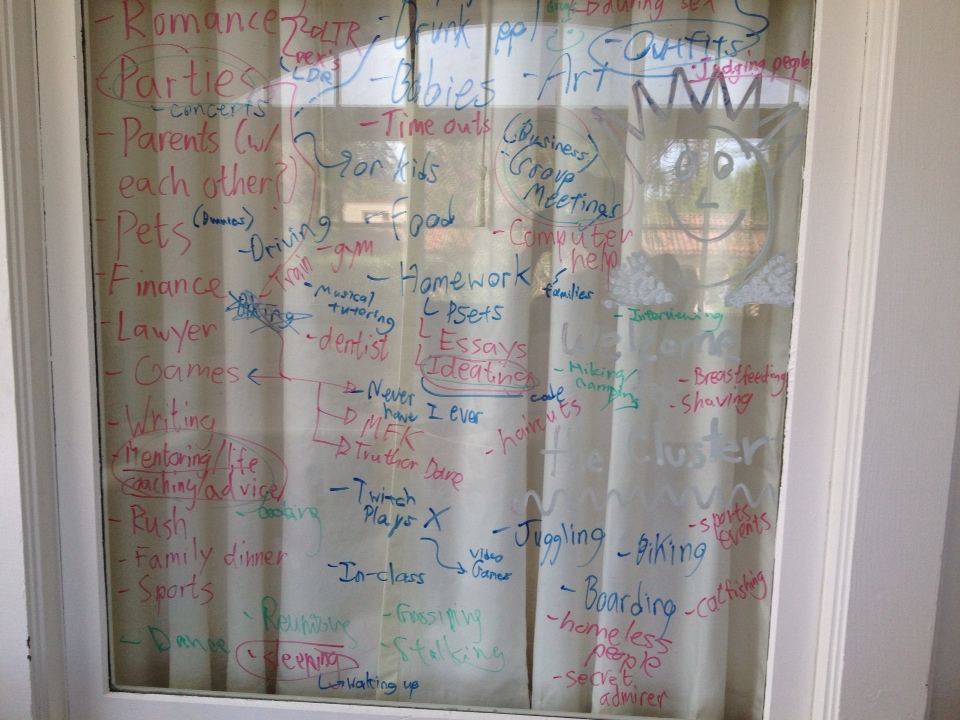 - Romance
LTR
LDR
- Parties
- concerts
- Parents (w/
each other?)
- Pets
(Bunnies)
- Finance
- Lawyer
- Games
- Writing
- Mentoring/life
coaching/advice
- Rush
- Family dinner
- Sports
- Dance
- Drunk ppl
- Babies
- Time outs
or kids
- Driving
- Train
- gym
- Food
- Musical
tutoring
- dentist
- Homework
PSets
Essays
Ideating
code
Never
have I ever
MFK
Truth or Dare
- Twitch
Plays X
video
Games
- In-class
- cooking
- Reunions
- Sleeping
waking up
- Gossiping
- Stalking
during sex
- Outfits
- Judging people
- Art
(Business)
- Group
Meetings
- Computer
help
families
- Interviewing
Welcome
to
the Cluster
- Hiking/
camping
- Breastfeeding
- shaving
- haircuts
- Juggling
- Biking
- sports
events
- Boarding
- catfishing
- homeless
people
- secret
admirer